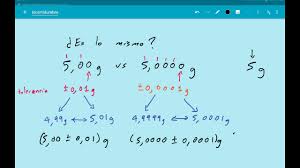 ¿Es lo mismo?
5,00g vs 5,0000g 5g
tolerancia ±0,01g ±0,0001g
4,99g ↔ 5,01g 4,9999g ↔ 5,0001g
(5,00 ± 0,01)g (5,0000 ± 0,0001)g